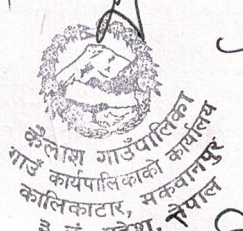 कैलाश गाउँपालिका
गाउँ कार्यपालिकाको कार्यालय
कालिकाटार, मकवानपुर
३ नं. प्रदेश, नेपाल